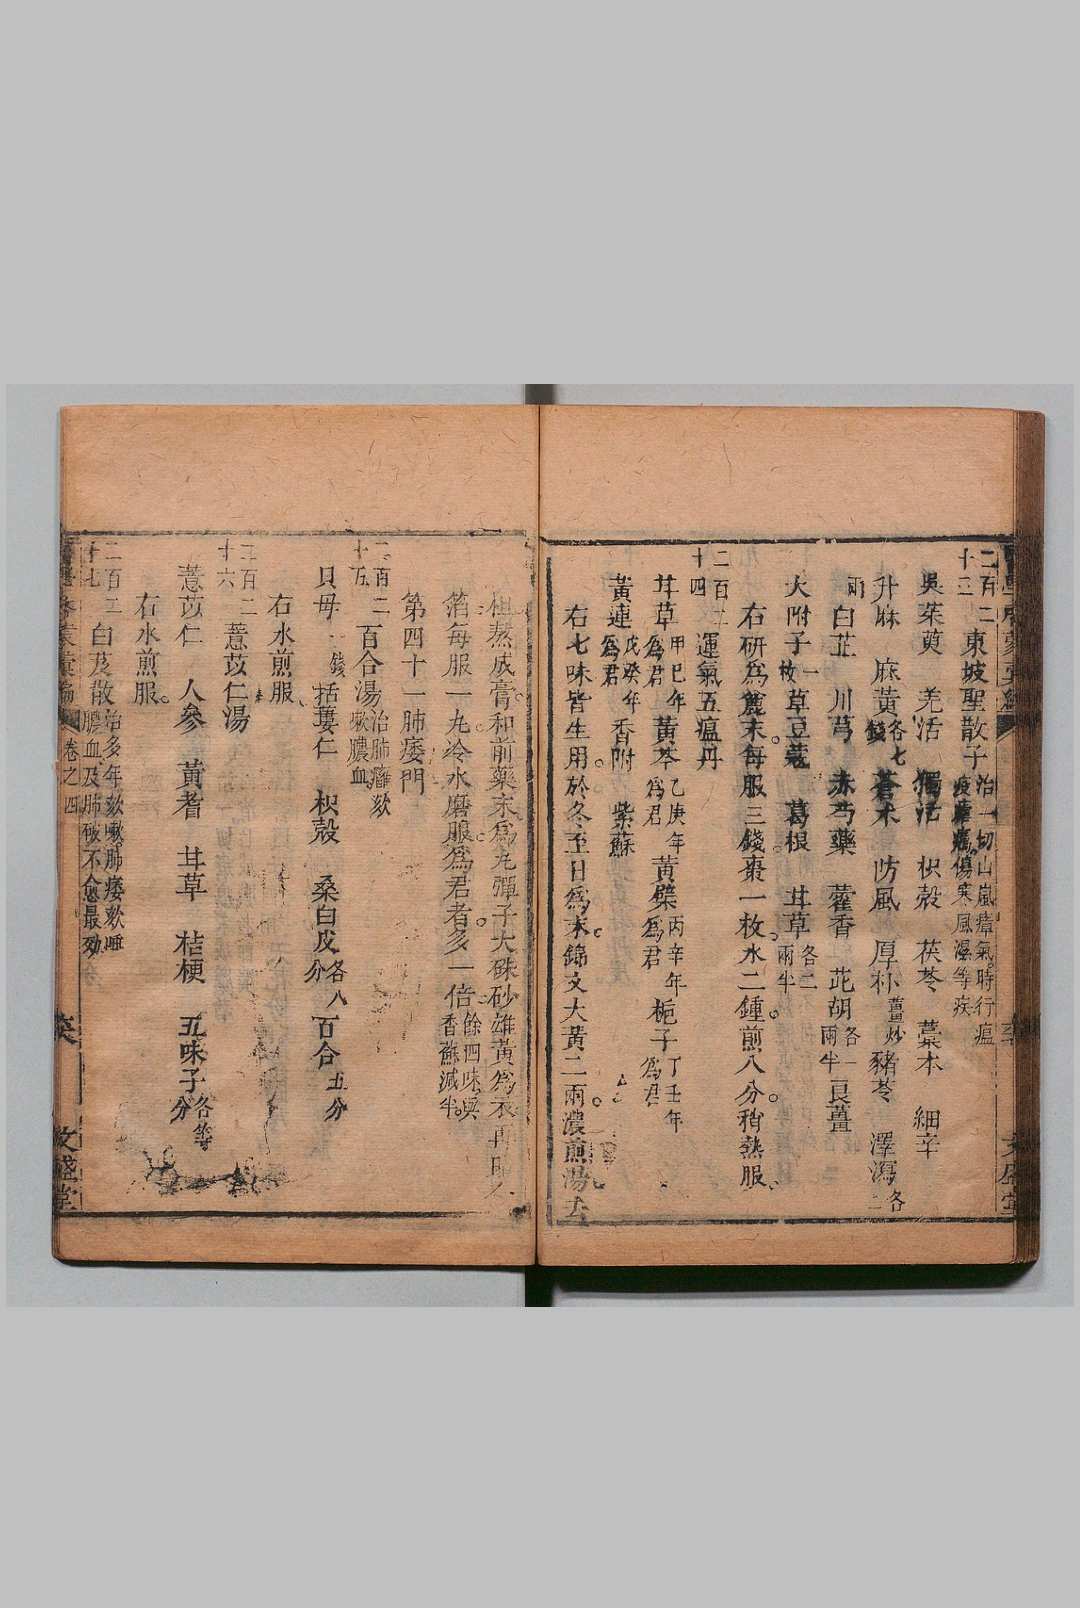 二百二十三 東坡聖散子 治一切山嵐瘴氣時行瘟疫 傷寒風濕等疾
吳茱萸 羌活 獨活 枳殼 茯苓 藁本 細辛
升麻 麻黃 各七錢 蒼朮 防風 厚朴 薑炒 豬苓 澤瀉 各二
兩 白芷 川芎 赤芍藥 藿香 茈胡 各一兩半 良薑
大附子 一枚 草豆蔻 葛根 甘草 各二兩半
右研為麄末每服三錢棗一枚水二鍾煎八分稍熱服
二百二十四 運氣五瘟丹
甘草 甲巳年為君 黃芩 乙庚年為君 黃檗 丙辛年為君 梔子 丁壬年為君
黃連 戊癸年為君 香附 紫蘇
右七味皆生用於冬至日為末錦文大黃二兩濃煎湯去
柤熬成膏和前藥末為丸彈子大硃砂雄黃為衣再
箔每服一丸冷水磨服為君者多一倍 餘四味與香蘇減半
第四十一肺痿門
二百二十五 百合湯 治肺癰欬嗽膿血
貝母 一錢 括蔞仁 枳殼 桑白皮 各八分 百合 五分
右水煎服
二百二十六 薏苡仁湯
薏苡仁 人參 黃耆 甘草 桔梗 五味子 各等分
右水煎服
二百二十七 白芨散 治多年欬嗽肺痿欬唾膿血及肺破不愈最効
卷之四
文盛堂